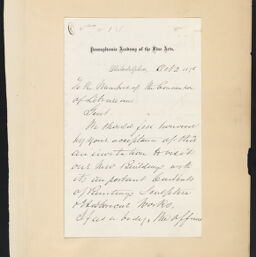 Pennsylvania Academy of the Fine Arts.
Philadelphia, Oct 2 1876
To the Members of the Convention
of Librarians
Gent
We should feel honored
by your acceptance of this
an invitation to visit
our New Building with
its important Contents
of Paintings Sculpture
& Works,
If as a body, the officers